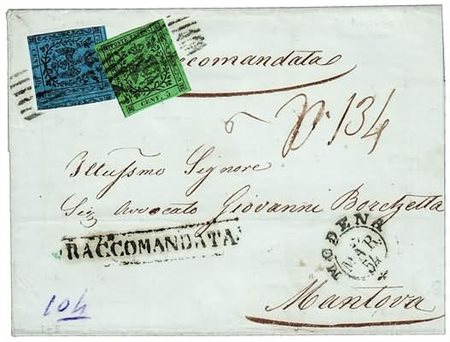 comandata
CENT. 5
N° 134
Illussmo Signore
Sig Avvocato Giovanni Borchetta
RACCOMANDATA
MODENA
MAR.
54
Mantova
104